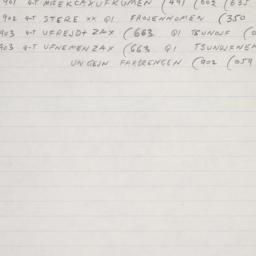 901 4-T MEEKCAXUFKUMEN (491 (602 (635
902 4-T STERE XX QI FROJENHOMEN (350
903 4-T UFREJDT ZAX (663 QI TSUNOJF
903 4-T UFNEMEN ZAX (663 QI TSUNOJFNEM
UN GEJN FARBRENGEN (902 (059